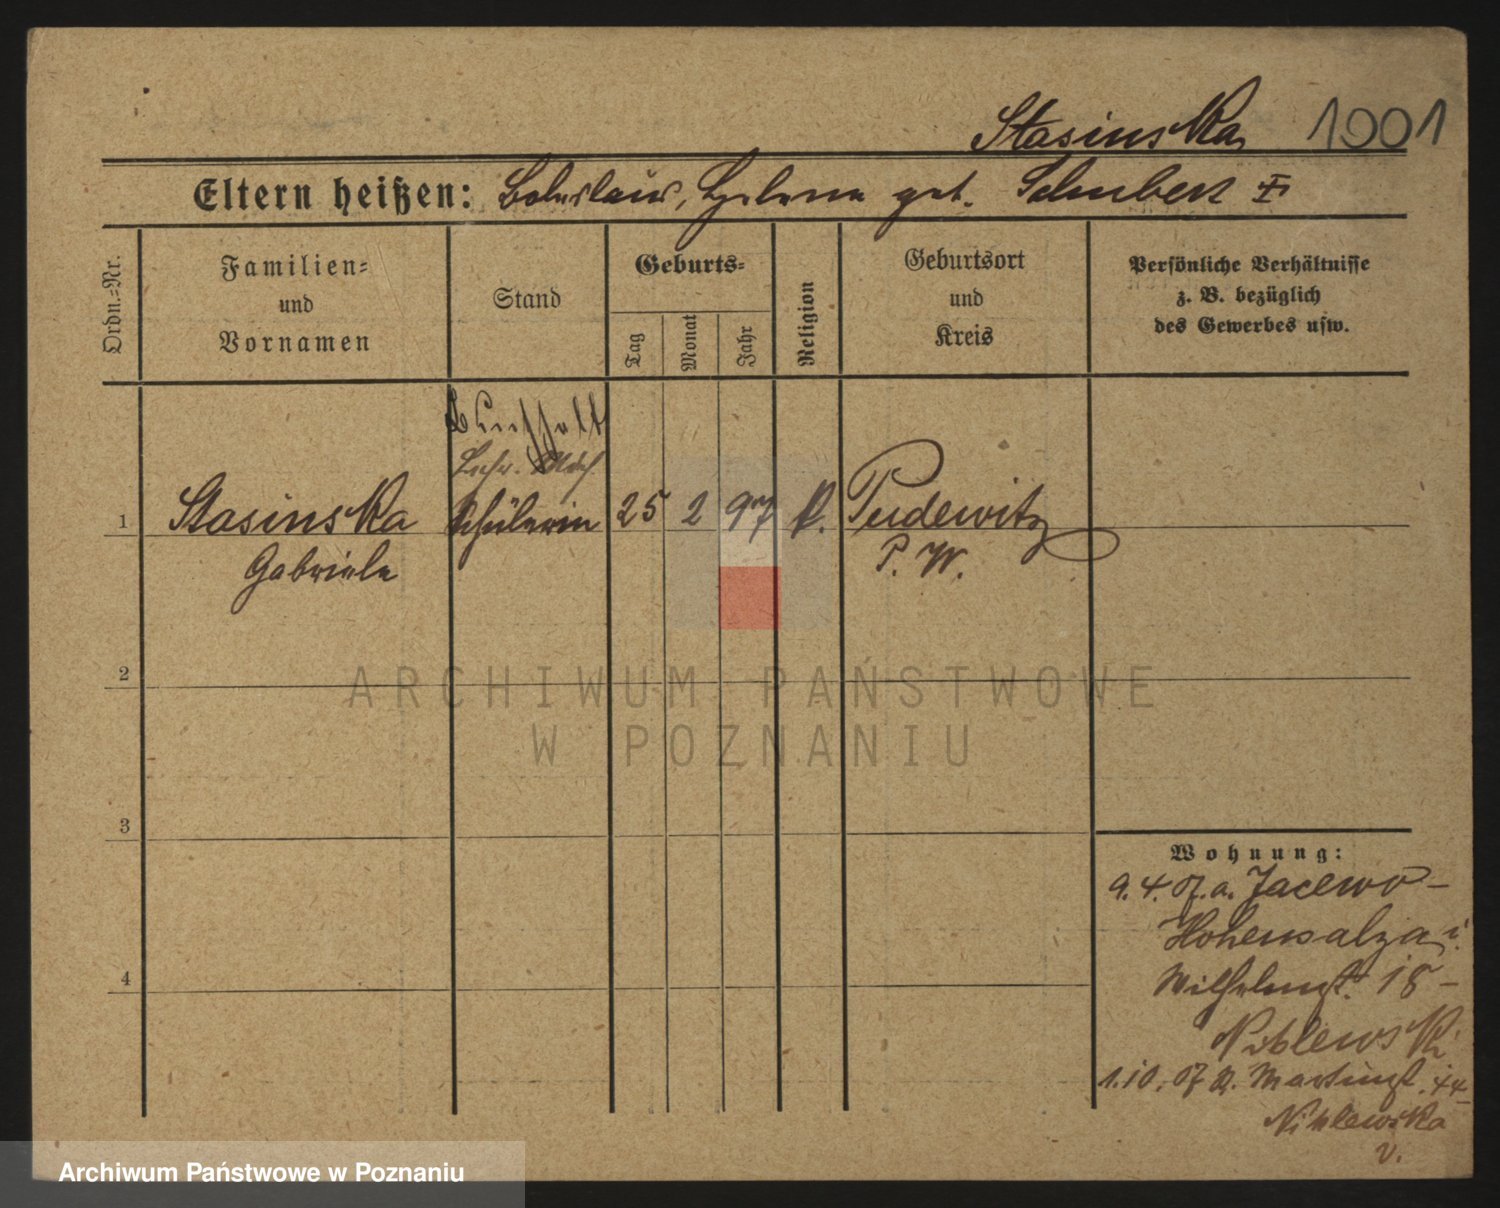 Stasinska 1001
Eltern heißen: Boleslaus, Helene geb. Schubert
Ordn.-Nr.
Familien-
und
Vornamen
Stand
Geburts-
Tag
Monat
Jahr
Religion
Geburtsort
und
Kreis
Persönliche Verhältnisse
z. B. bezüglich
des Gewerbes usw.
1 Stasinska Schülerin 25 2 97 k. Pudewitz
Gabriele P. W.
2
3
4
Wohnung:
9. 4. 07. a. Jacewo -
Hohensalza
Wilhelmst. 18 -
1. 10. 07 Martinst. 44
v.
ARCHIWUM PAŃSTWOWE
W POZNANIU
Archiwum Państwowe w Poznaniu